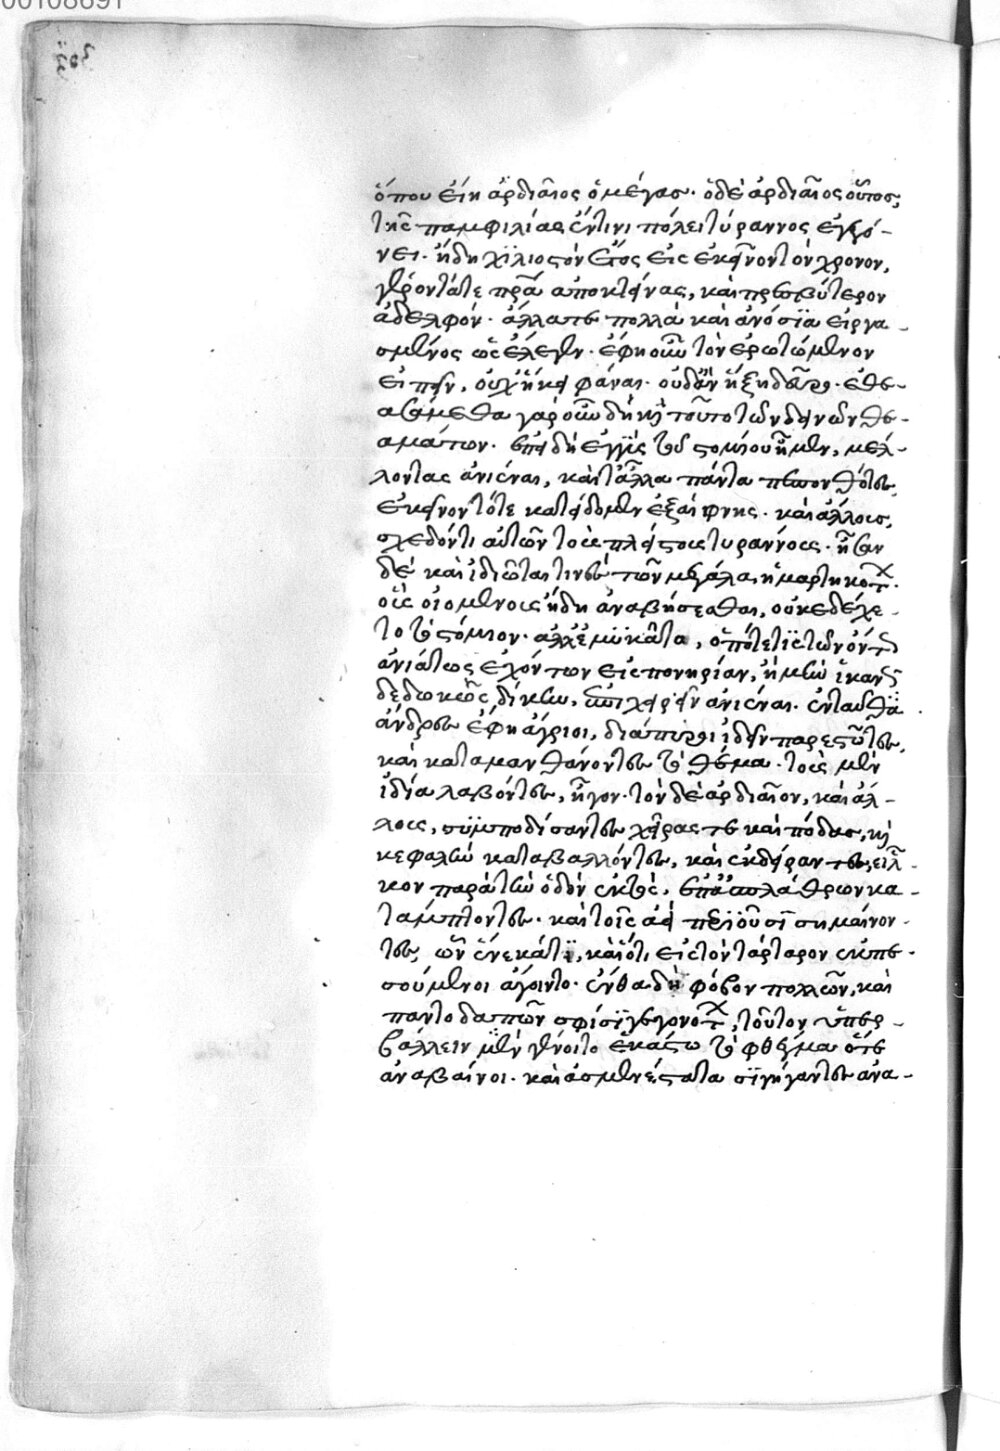 00108691
ὅπου εἴη ἀρδιαῖος ὁ μέγας· ὁ δὲ ἀρδιαῖος οὗτος,
τῆς παμφιλίας ἔν τινι πόλει τύραννος ἐγεγό-
νει· ἤδη χϊλιοστὸν ἔτος εἰς ἐκεῖνον τὸν χρόνον,
γέροντά τε πρα ἀποκτείνας, καὶ πρεσβύτερον
ἀδελφόν· ἄλλα τε πολλὰ καὶ ἀνόσϊα εἰργα-
σμένος ὡς ἐλέγετο· ἔφη οὖν τὸν ἐρωτώμενον
εἰπεῖν, οὐχ ἥκει φάναι· οὐδ' ἂν ἥξει δεῦρο· ἐθε-
ασάμεθα γὰρ οὖν δὴ καὶ τοῦτο τῶν δεινῶν θε-
αμάτων· ἐπειδὴ ἐγγὺς τοῦ στομίου ἦμεν, μέλ-
λοντες ἀνιέναι, καὶ τἆλλα πάντα πεπονθότες,
ἐκεῖνόν τότε κατείδομεν ἐξαίφνης· καὶ ἄλλους,
σχεδόν τι αὐτῶν τοὺς πλείστους τυράννους· ἦσαν
δὲ καὶ ἰδιῶται τινὲς τῶν μεγάλα ἡμαρτηκότ·
οὓς οἰομένους ἤδη ἀναβήσεσθαι, οὐκ ἐδέχε-
το τὸ στόμιον· ἀλλ' ἐμυκᾶτο, ὁπότε τὶς τῶν οὕτως
ἀνιάτως ἐχόντων εἰς πονηρίαν, ἢ μὴ ἱκανῶς
δεδωκὼς δίκην, ἐπιχειροῖ ἀνιέναι· ἐνταῦθα
ἄνδρες ἔφη ἄγριοι, διάπυροι ἰδεῖν παρεστῶτες,
καὶ καταμανθάνοντες τὸ φθέγμα· τοὺς μὲν
ἰδίᾳ λαβόντες, ἦγον· τὸν δὲ ἀρδιαῖον, καὶ ἄλ-
λους, συμποδίσαντες χεῖρας τε καὶ πόδας, καὶ
κεφαλὴν καταβαλόντες, καὶ ἐκδείραντες, εἷλ-
κον παρὰ τὴν ὁδὸν ἐκτὸς, ἐπ' ἀσπαλάθων κνά-
μπτοντες· καὶ τοῖς ἀεὶ παριοῦσι σημαίνον-
τες, ὧν ἕνεκά τε, καὶ ὅτι εἰς τὸν τάρταρον ἐμπε-
σούμενοι ἄγοιντο· ἔνθα δὴ φόβον πολλῶν, καὶ
παντοδαπῶν σφίσι γεγονότ, τοῦτον ὑπερ-
βάλλειν μὴ γένοιτο ἑκάστῳ τὸ φθέγμα ὅτε
ἀναβαίνοι· καὶ ἀσμενέστατα σϊγήσαντος ἀνα-